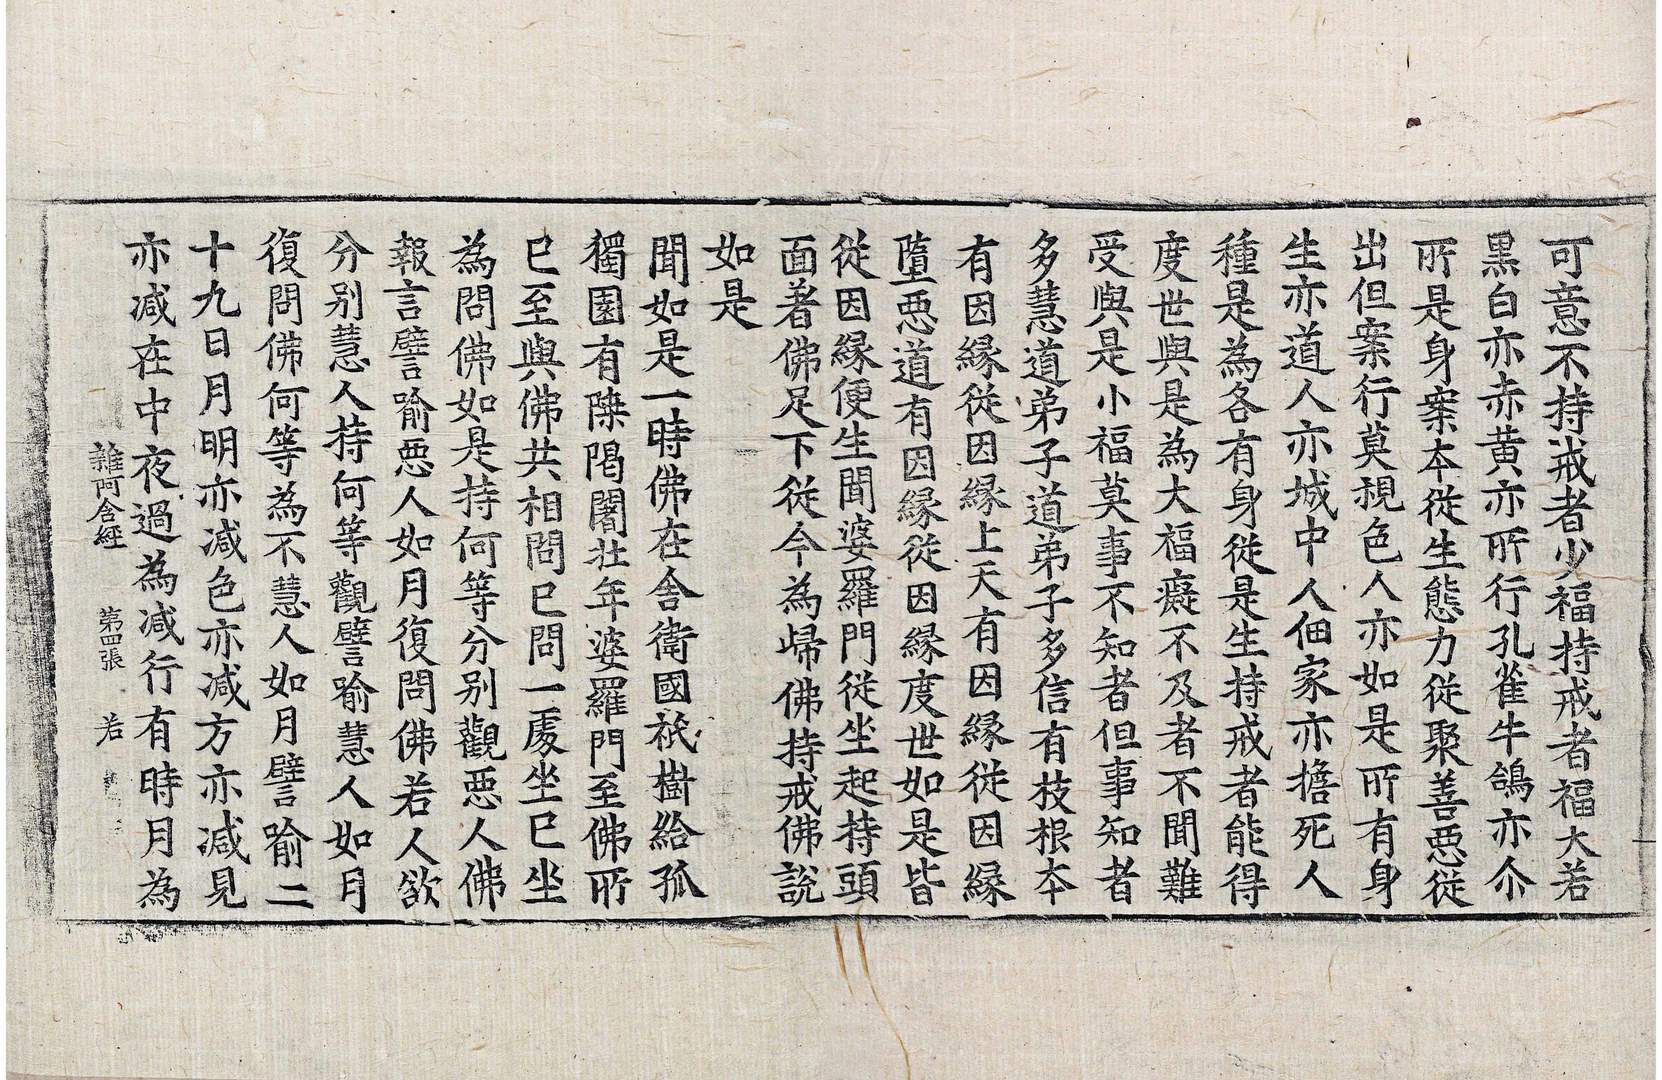 可意不持戒者少福持戒者福大若
黒白亦赤黄亦所行孔雀牛鴿亦尒
所是身案本従生態力従聚善惡従
出但案行莫視色人亦如是所有身
生亦道人亦城中人佃家亦擔死人
種是為各有身従是生持戒者能得
度世與是為大福癡不及者不聞難
受與是小福莫事不知者但事知者
多慧道弟子道弟子多信有枝根本
有因緣従因緣上天有因緣従因緣
墮惡道有因緣従因緣度世如是皆
従因緣便生聞婆羅門従坐起持頭
面著佛足下従今為歸佛持戒佛說
如是
聞如是一時佛在舍衛國祇樹給孤
獨園有𨻶𨻶闍壯年婆羅門至佛所
已至與佛共相問已問一處坐已坐
為問佛如是持何等分別觀惡人佛
報言譬喻惡人如月復問佛若人欲
分别慧人持何等觀譬喻慧人如月
復問佛何等為不慧人如月譬喻二
十九日月明亦减色亦减方亦减見
亦减在中夜過為减行有時月為
雜阿含經　第四張　若